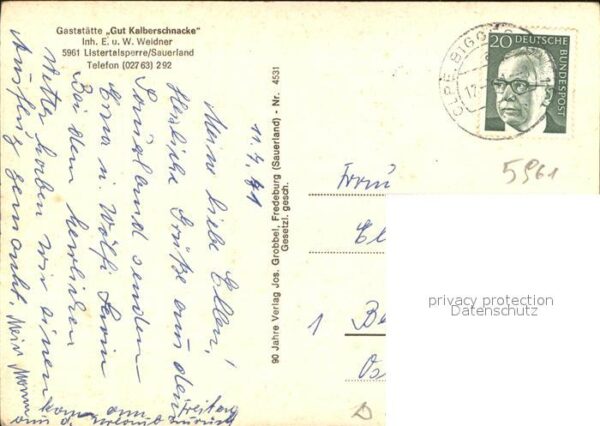 Gaststätte „Gut Kalberschnacke"
Inh. E. u. W. Weidner
5961 Listertalsperre/Sauerland
Telefon (02763) 292
11.4.71
Meine liebe Ellen!
Herzliche Grüße aus dem
Sauerland senden
Erna u. Wolfi
Bei dem herrlichen
Wetter haben wir einen
Ausflug gemacht. Mein Mann
kam am Freitag
zurück
90 Jahre Verlag Jos. Grobbel, Fredeburg (Sauerland) - Nr. 4531
Gesetzl. gesch.
20 DEUTSCHE
BUNDESPOST
OLPE-BIGGE
17-
5961
1
privacy protection
Datenschutz